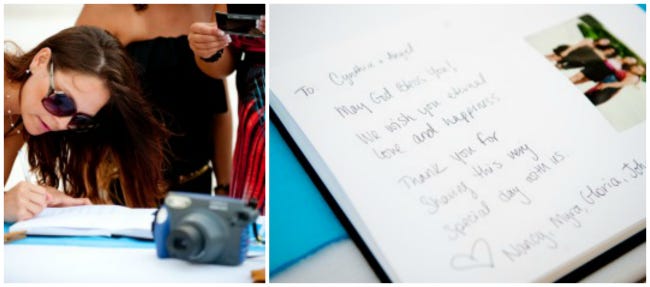 To: Cynthia + Angel
May God Bless You!
We wish you eternal
love and happiness.
Thank you for
Sharing this very
special day with us.
Nancy, Mya, Gloria, Joh